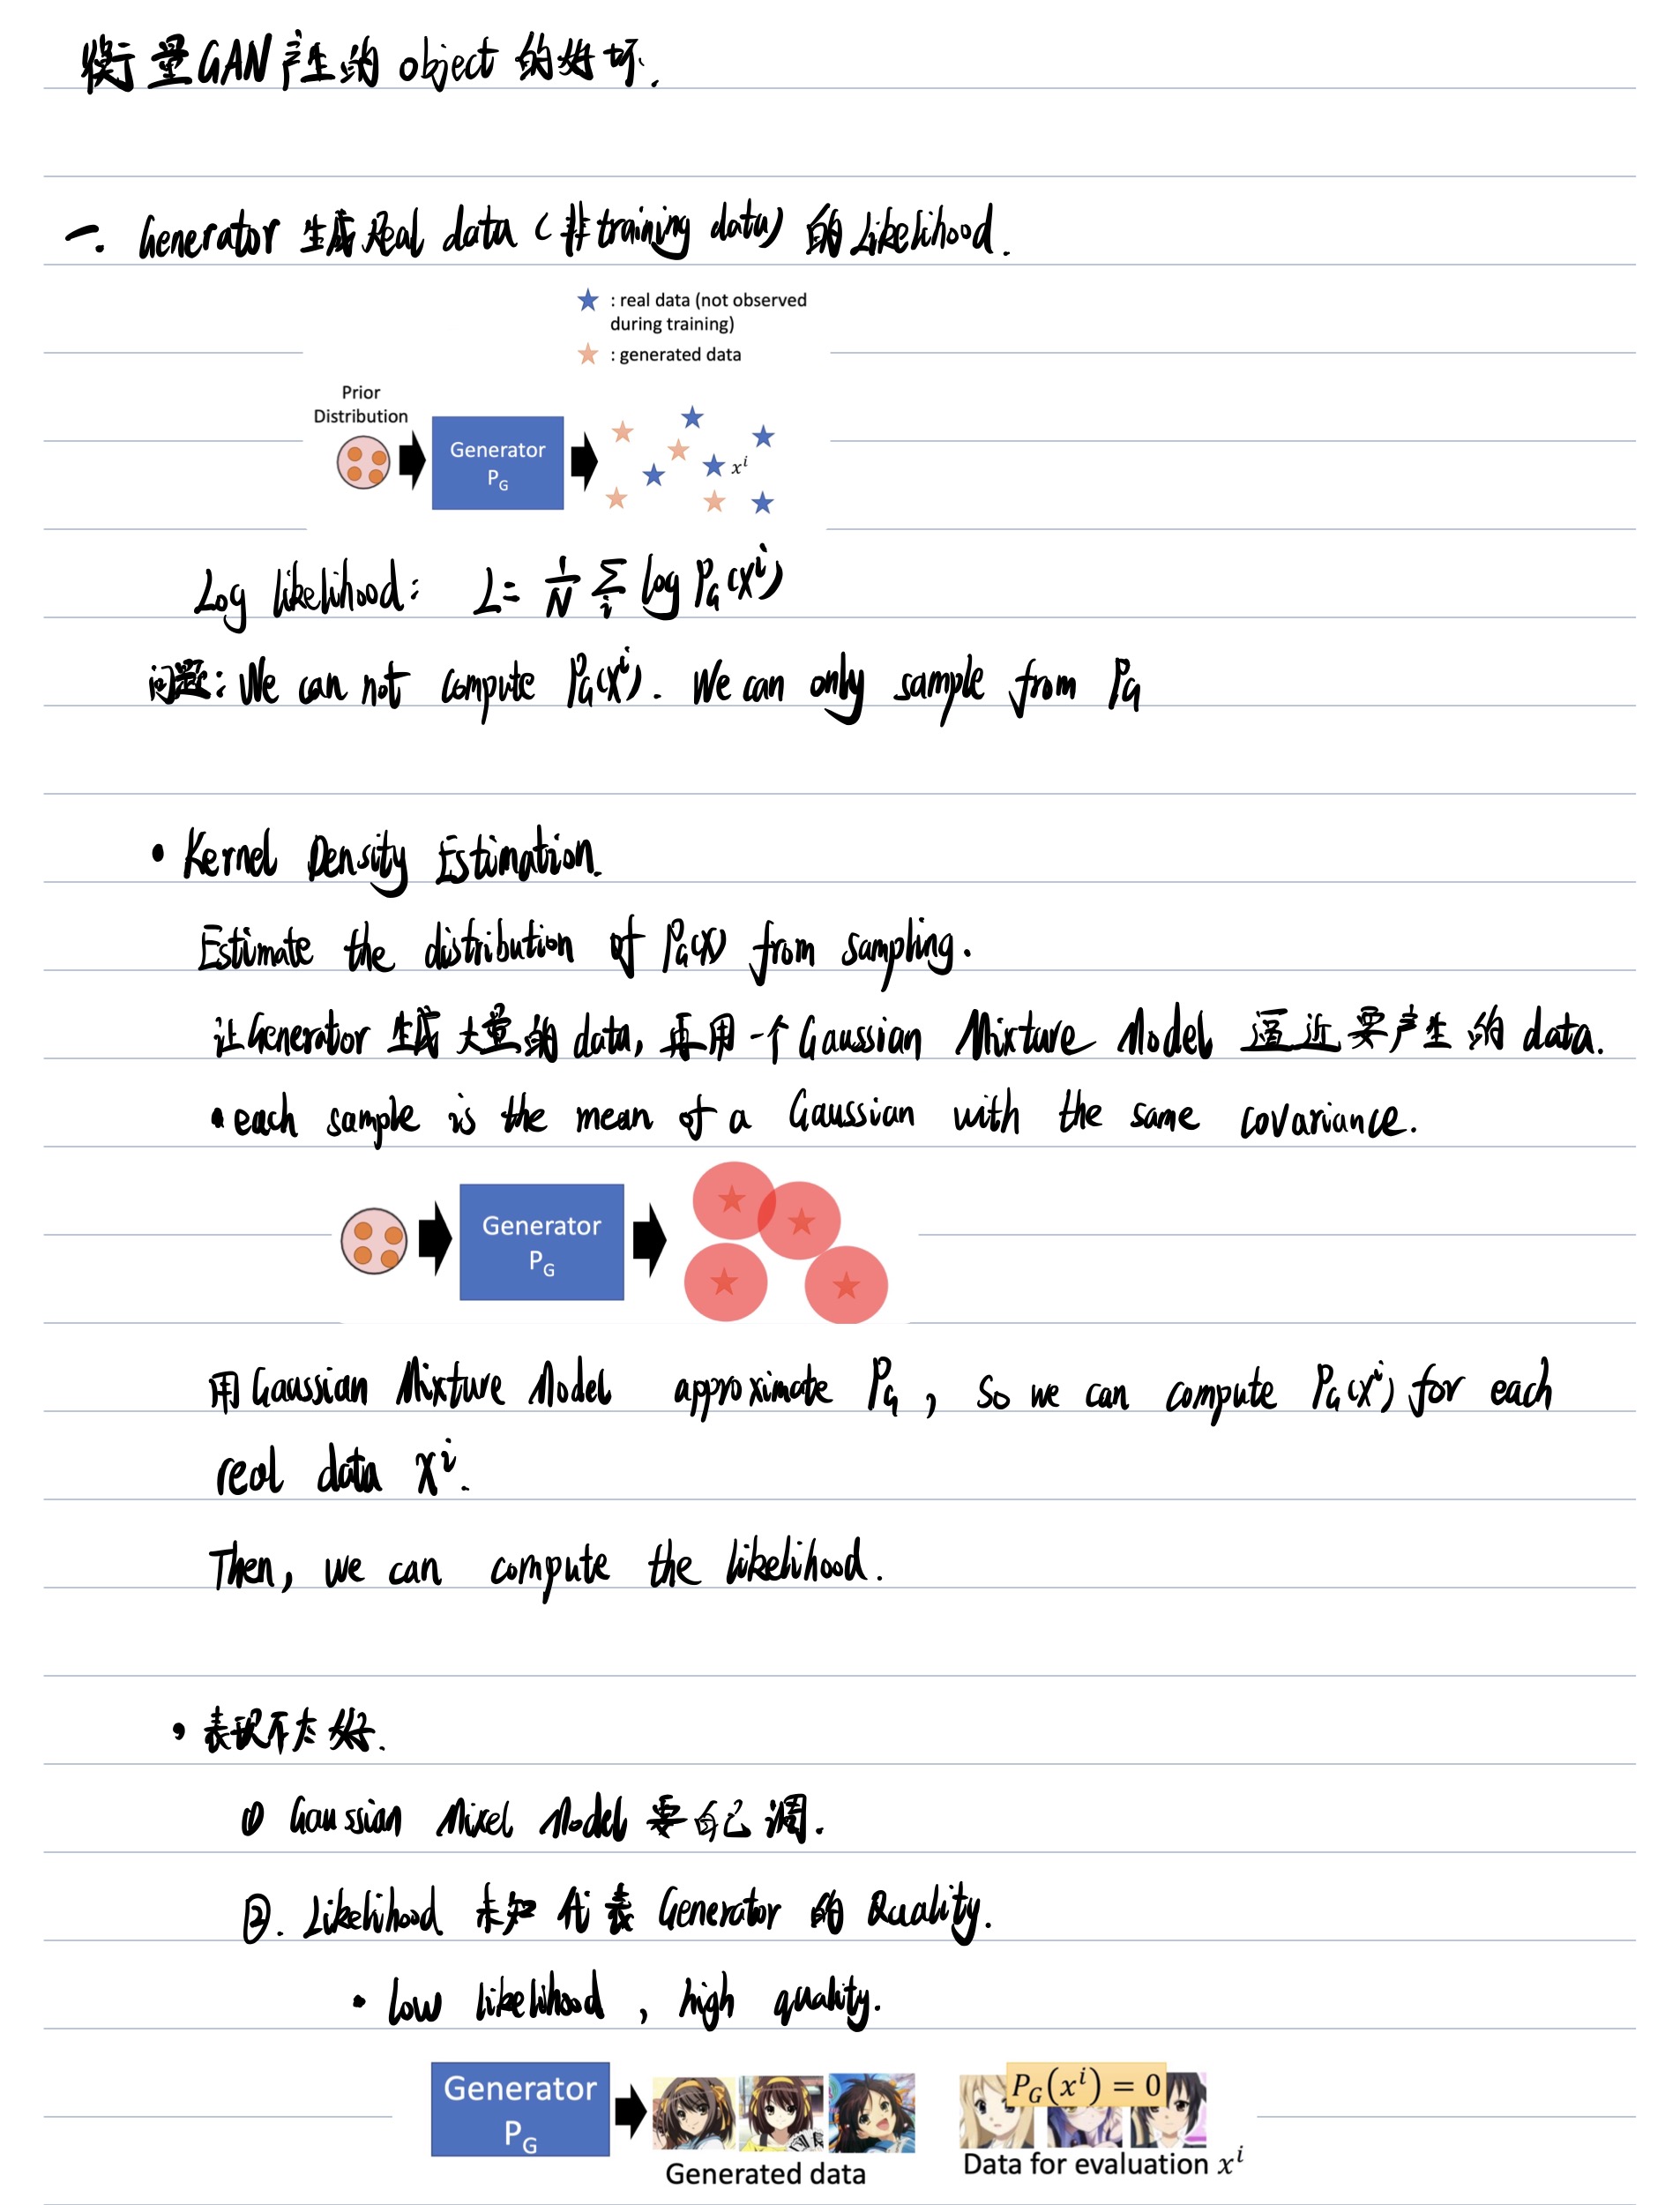 衡量GAN产生的object的好坏.
一. Generator 生成Real data (非training data) 的Likelihood.
★ : real data (not observed
during training)
★ : generated data
Prior
Distribution
Generator
P_G
x^i
Log likelihood: L = 1/N Σ_i log P_G(x^i)
问题: We can not compute P_G(x^i). We can only sample from P_G
• Kernel Density Estimation.
Estimate the distribution of P_G(x) from sampling.
让Generator 生成大量的data, 再用一个Gaussian Mixture Model 逼近要产生的data.
• each sample is the mean of a Gaussian with the same covariance.
Generator
P_G
用Gaussian Mixture Model approximate P_G, so we can compute P_G(x^i) for each
real data x^i.
Then, we can compute the likelihood.
• 表现不太好.
① Gaussian Mixel Model 要自己调.
②. Likelihood 未知代表 Generator 的 Quality.
• Low likelihood, high quality.
Generator
P_G
P_G(x^i) = 0
Generated data
Data for evaluation x^i